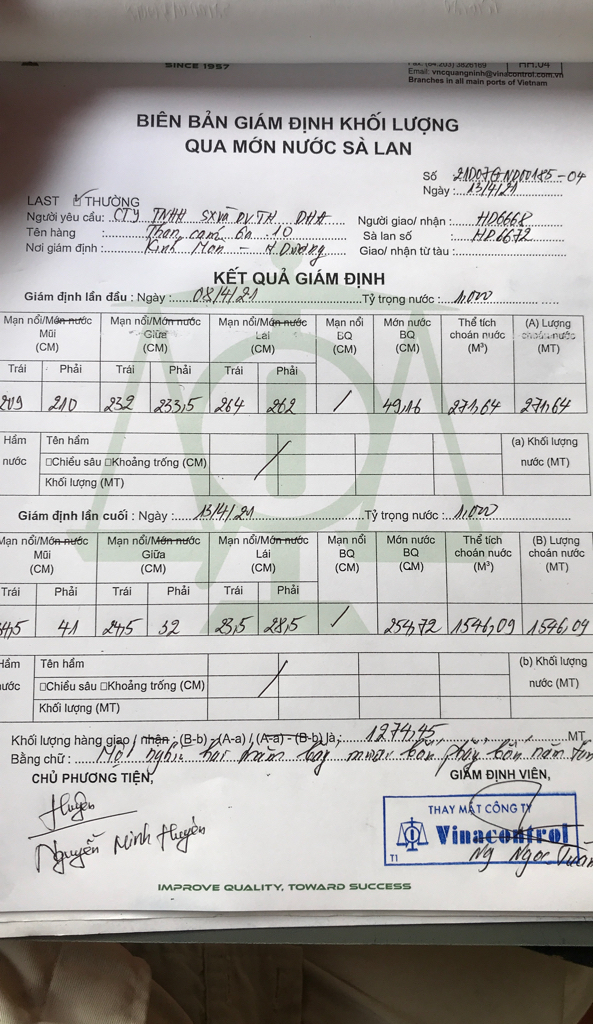 SINCE 1957
Fax: (84.203) 3826169
HH.04
Email: vncquangninh@vinacontrol.com.vn
Branches in all main ports of Vietnam
BIÊN BẢN GIÁM ĐỊNH KHỐI LƯỢNG
QUA MỚN NƯỚC SÀ LAN
Số 21D07GND00185-04
LAST ☑THƯỜNG Ngày: 13/4/21
Người yêu cầu: CTY TNHH SX và DV TH DHA Người giao/ nhận: HD6668
Tên hàng : Than cám 6a .10 Sà lan số : HD6672
Nơi giám định : Kinh Môn - H Dương Giao/ nhận từ tàu:
KẾT QUẢ GIÁM ĐỊNH
Giám định lần đầu: Ngày: 08/4/21 Tỷ trọng nước: 1,000
Mạn nổi/Mớn nước Mũi (CM) Mạn nổi/Mớn nước Giữa (CM) Mạn nổi/Mớn nước Lái (CM) Mạn nổi BQ (CM) Mớn nước BQ (CM) Thể tích choán nước (M³) (A) Lượng choán nước (MT)
Trái Phải Trái Phải Trái Phải
209 210 232 233,5 264 262 / 49,16 271,64 271,64
Hầm nước Tên hầm (a) Khối lượng nước (MT)
□Chiều sâu □Khoảng trống (CM) /
Khối lượng (MT)
Giám định lần cuối : Ngày: 13/4/21 Tỷ trọng nước: 1,000
Mạn nổi/Mớn nước Mũi (CM) Mạn nổi/Mớn nước Giữa (CM) Mạn nổi/Mớn nước Lái (CM) Mạn nổi BQ (CM) Mớn nước BQ (CM) Thể tích choán nước (M³) (B) Lượng choán nước (MT)
Trái Phải Trái Phải Trái Phải
41 24,5 32 23,5 28,5 / 254,72 1546,09 1546,09
Hầm nước Tên hầm (b) Khối lượng nước (MT)
□Chiều sâu □Khoảng trống (CM) /
Khối lượng (MT)
Khối lượng hàng giao / nhận : (B-b) - (A-a) / (A-a) - (B-b) là: 1274,45 MT
Bằng chữ : Một nghìn hai trăm bảy mươi bốn phẩy bốn năm tấn
CHỦ PHƯƠNG TIỆN, GIÁM ĐỊNH VIÊN,
Huyên
Nguyễn Minh Huyên
THAY MẶT CÔNG TY
Vinacontrol
T1
Ng Ngọc Tuấn
IMPROVE QUALITY, TOWARD SUCCESS